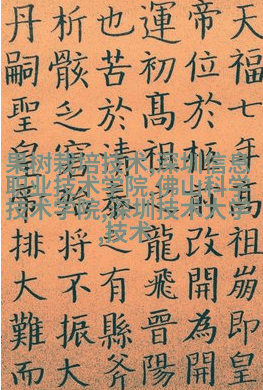 天福七年高祖崩即皇
帝位於改開為開
運初高龍飛晉陽
也苦於清泰之有縣斧
析骸之將不振大
丹嗣聖皇帝排大難而
果树栽培技术,深圳信息
职业技术学院,佛山科学
技术学院,深圳技术大学
,技术